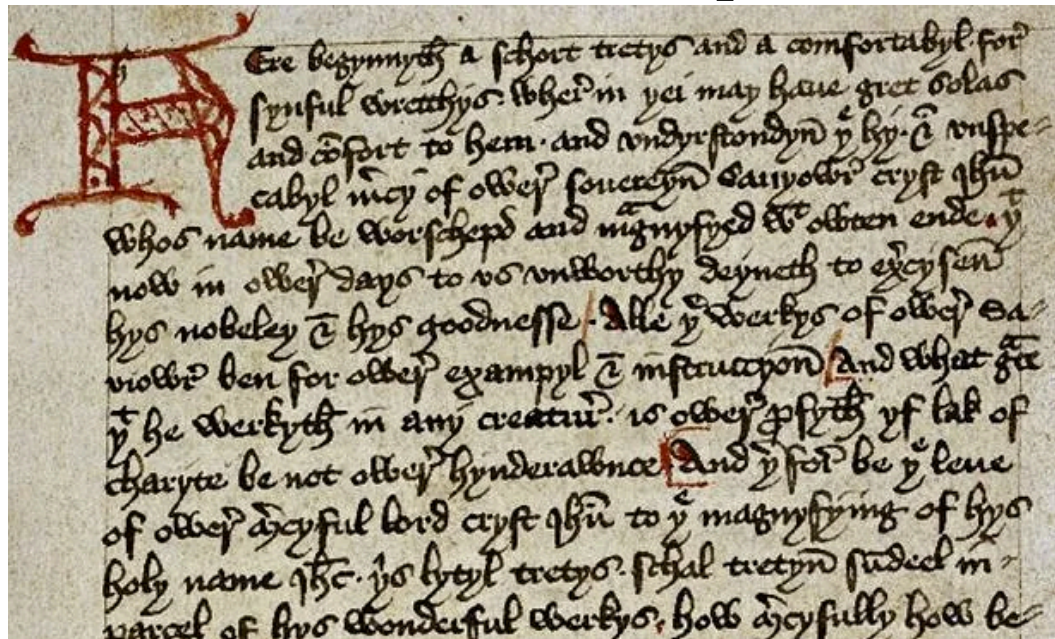 HEre begynnyth̄ a schort tretys and a comfortabyl for̄
synful wrecchys. wher̄ in yei may haue gret solas
and cōfort to hem. and vndyrstondyn̄ yͤ hy. & vnspe-
cabyl m̄cy of ower̄ souereyn̄ Sauyowr̄ cryst Ihū
whos name be worschepd and magnyfyed wͭ owten ende. yͭ
now in ower̄ days to vs vnworthy deyneth to exercysen̄
hys nobeley & hys goodnesse. Alle yͤ werkys of ower̄ Sa-
viowr̄ ben for ower̄ exampyl & instruccyon̄ And what gᵃce
yͭ he werkyth̄ in any creatur̄. is ower̄ ꝓfyth̄ yf lak of
charyte be not ower̄ hynderawnce And yͤr for̄ be yͤ leue
of ower̄ m̄cyful lord cryst Ihū to yͤ magnyfying of hys
holy name Ihc̄. yⁱs lytyl tretys. schal tretyn̄ sūdeel in-
parcel of hys wonderful werkys. how m̄cyfully how be-